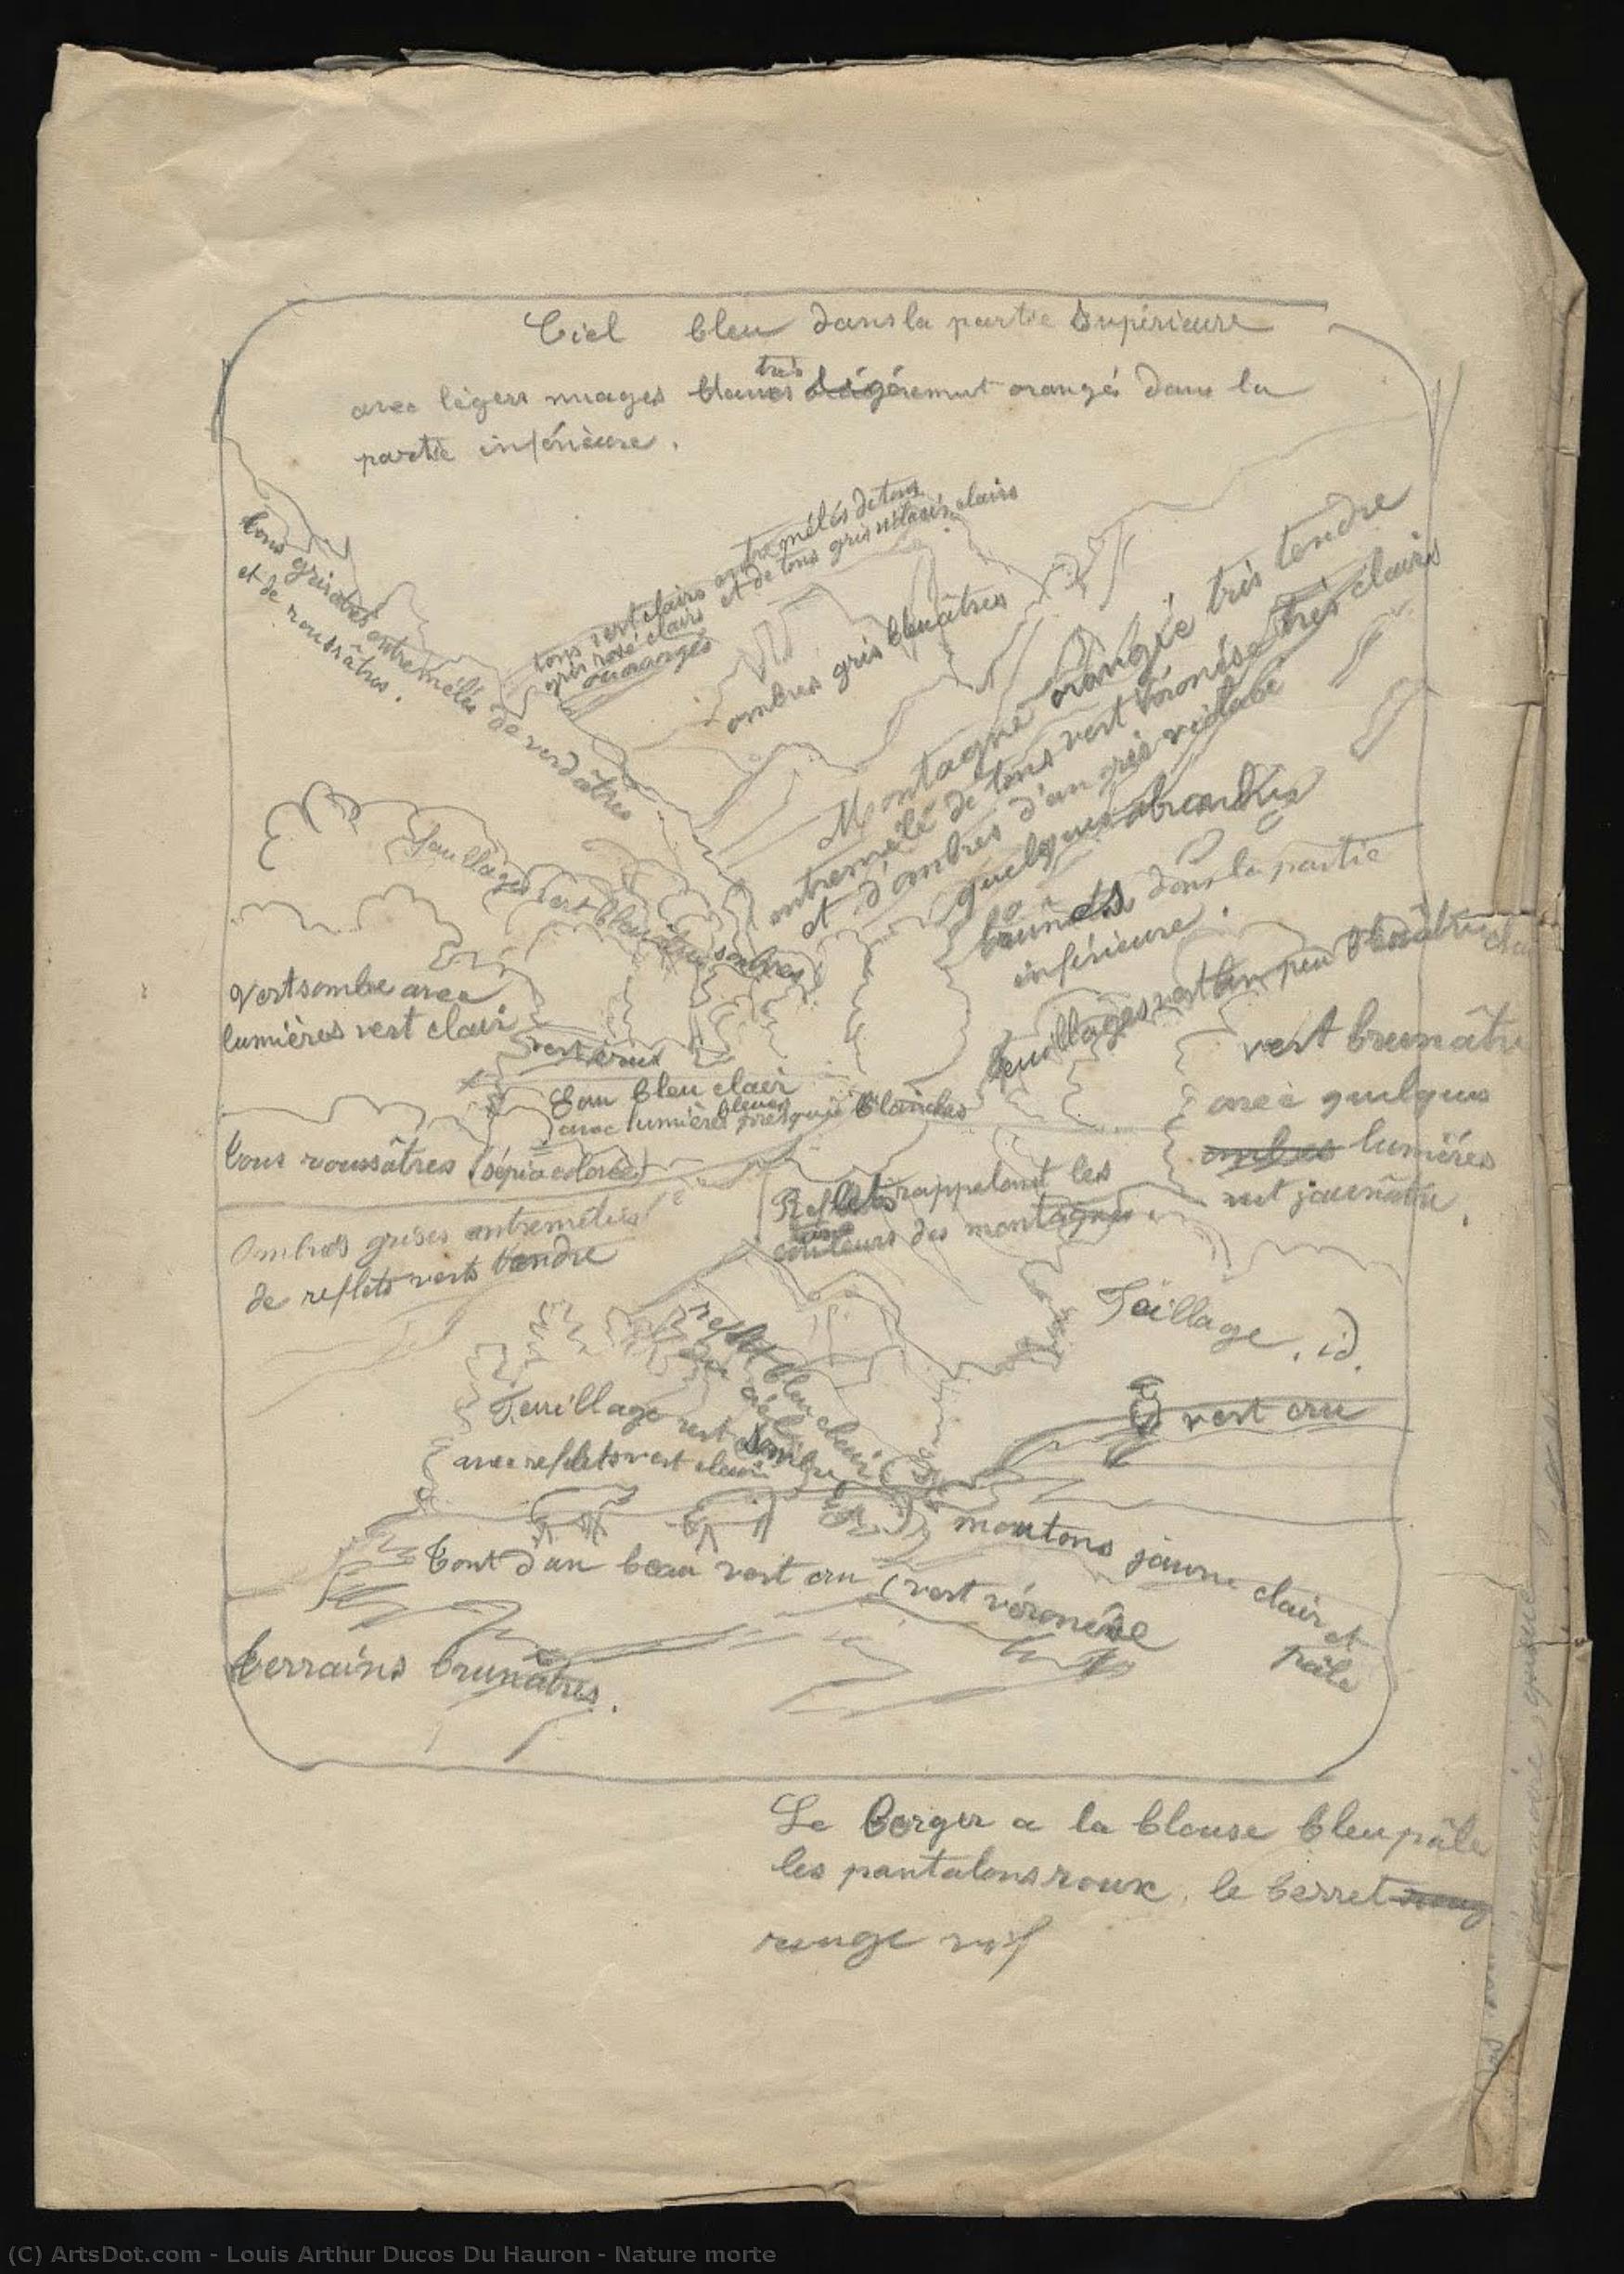 Ciel bleu dans la partie supérieure
très
avec légers nuages blancs légèrement orangés dans la
partie inférieure.
tons grisâtres entremêlés de verdâtres
et de roussâtres.
tons vert clairs entremêlés de tons
gris rosé clairs et de tons gris clairs
ou orangés
ombres gris bleuâtres
Montagne orangée très tendre
entremêlé de tons vert véronèse très clairs
et d'ombres d'un gris violacé
quelques
brunes dans la partie
inférieure.
feuillages vert bleuâtres sombres
feuillages vert un peu bleuâtre
Vert sombre avec
lumières vert clair
vert cru
vert brunâtre
avec quelques
ombres lumières
vert jaunâtre.
Eau bleu clair
bleues
avec lumières presque blanches
tons roussâtres (sépia colorée)
Reflets rappelant les
couleurs des montagnes
Ombres grises entremêlées
de reflets verts tendre
Feuillage, id.
reflet bleu clair
du ciel
vert cru
Feuillage vert sombre
avec reflets vert clair
moutons jaune clair et
pâle
Tout d'un beau vert cru (vert véronèse
terrains brunâtres.
Le berger a la blouse bleu pâle
les pantalons roux, le berret roug
rouge vif
(C) ArtsDot.com - Louis Arthur Ducos Du Hauron - Nature morte